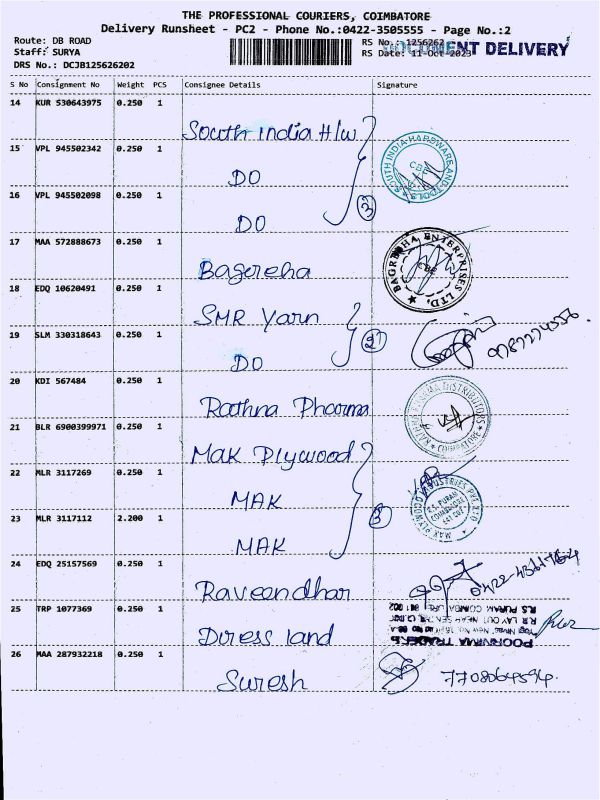 THE PROFESSIONAL COURIERS, COIMBATORE
Delivery Runsheet - PC2 - Phone No.:0422-3505555 - Page No.:2
Route: DB ROAD
Staff: SURYA
DRS No.: DCJB125626202
RS No.: 1256262
RS Date: 11-Oct-2023
DOCUMENT DELIVERY
S No Consignment No Weight PCS Consignee Details Signature
14 KUR 530643975 0.250 1
South India H/w
15 VPL 945502342 0.250 1
DO
16 VPL 945502098 0.250 1
DO
3
SOUTH INDIA HARDWARE AND TOOLS
CBE
17 MAA 572888673 0.250 1
Bagereha
BAGREHA ENTERPRISES LTD.
CBE
18 EDQ 10620491 0.250 1
SMR Yarn
19 SLM 330318643 0.250 1
DO
2
20 KDI 567484 0.250 1
Rathna Pharma
DISTRIBUTORS
COIMBATORE
21 BLR 6900399971 0.250 1
MAK Plywood
22 MLR 3117269 0.250 1
MAK
23 MLR 3117112 2.200 1
MAK
3
MAK PLYWOOD INDUSTRIES PVT LTD
R.S. PURAM
COIMBATORE
641 002
24 EDQ 25157569 0.250 1
Raveendhar
25 TRP 1077369 0.250 1
Diress land
POORNIMA TRADERS
R.S. PURAM, COIMBATORE 641 002
26 MAA 287932218 0.250 1
Suresh
7708064594